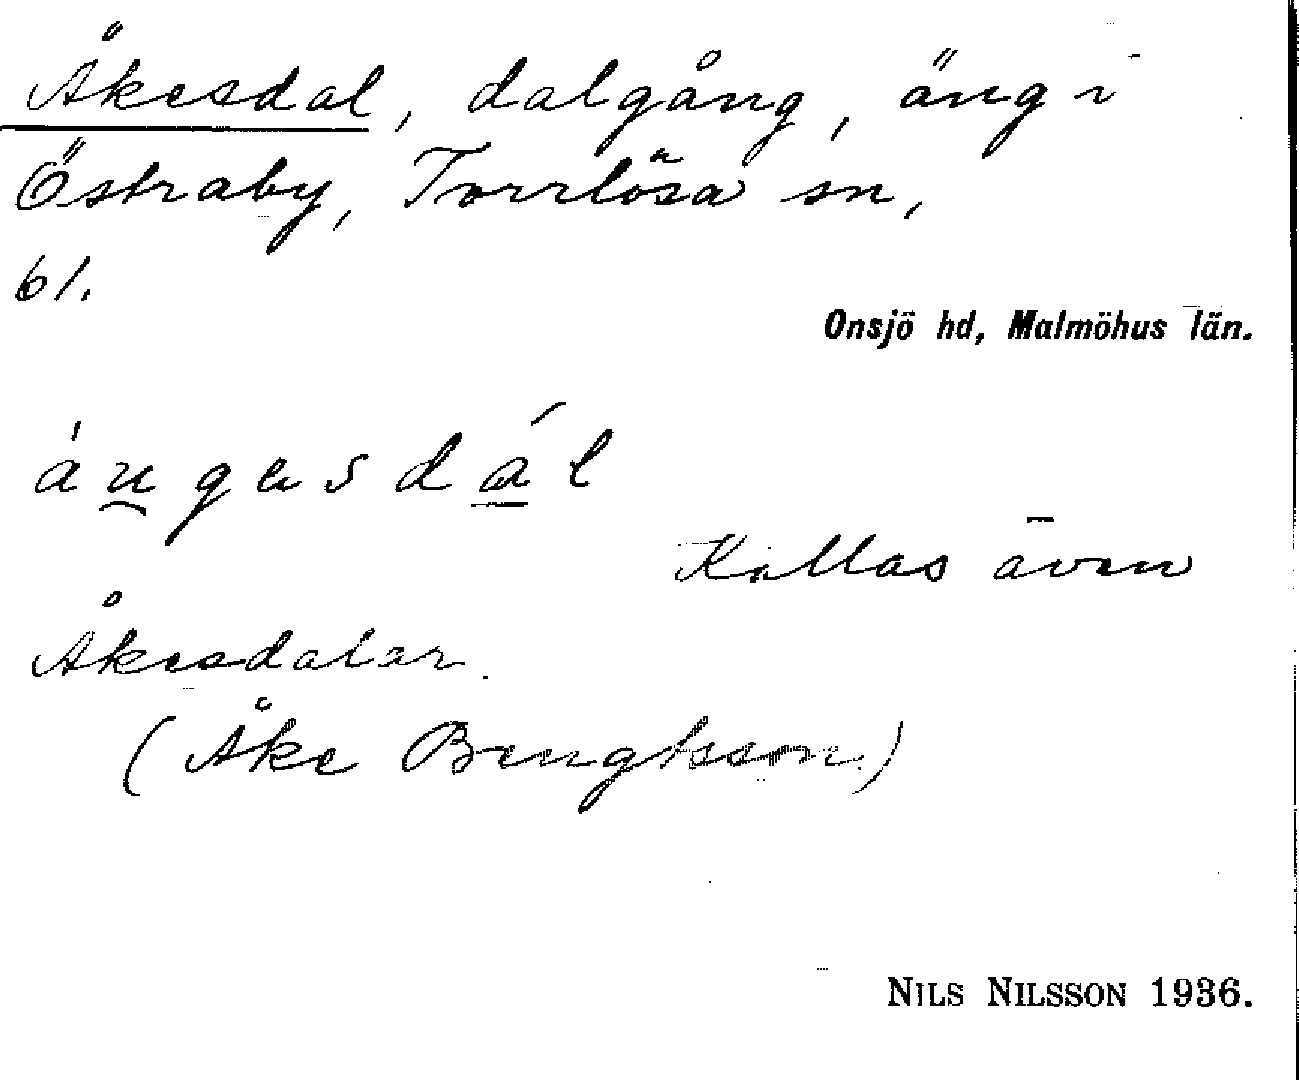 Åkesdal, dalgång, äng i
Östraby, Torrlösa sn,
61.
Onsjö hd, Malmöhus län.
Kallas även
Åkesdalar.
(Åke Bengtsson)
NILS NILSSON 1936.